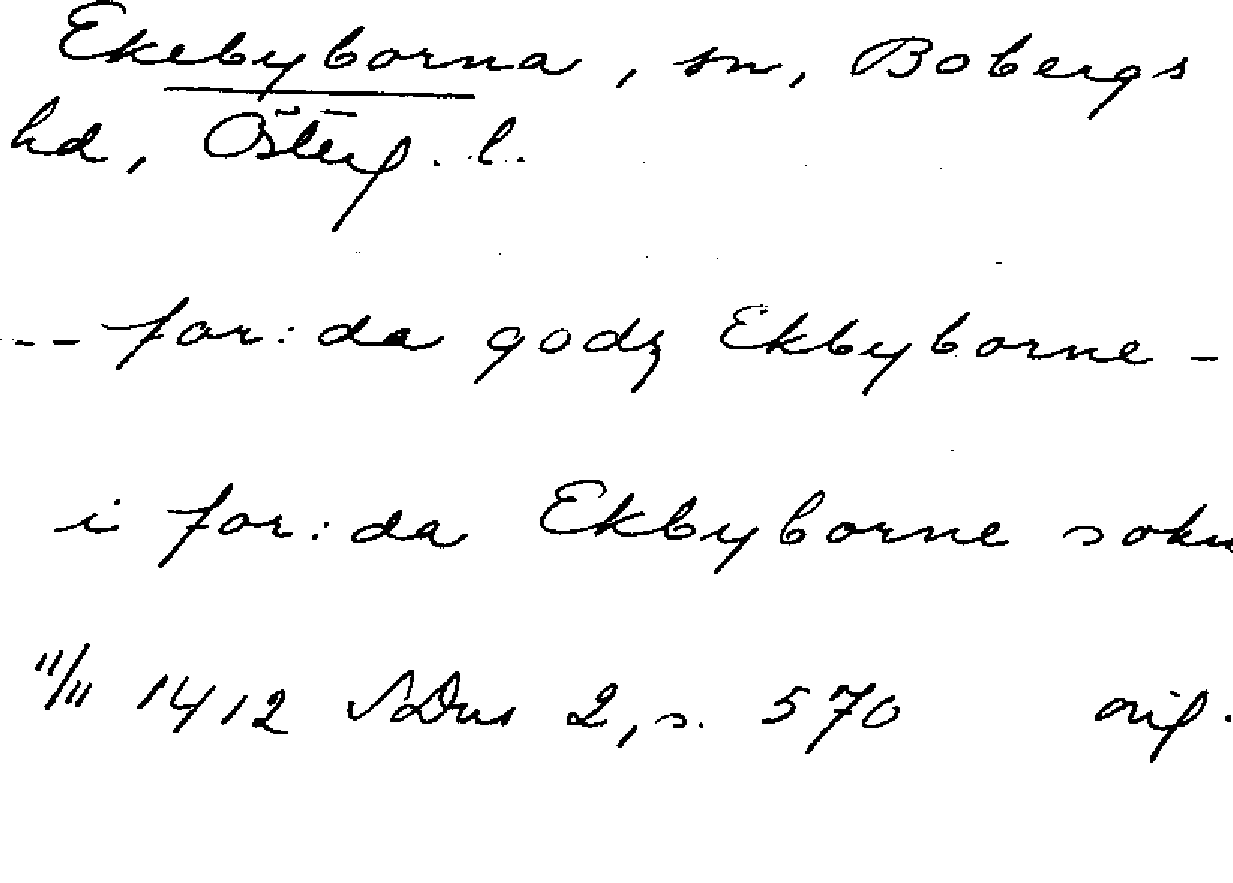 Ekebyborna, sn, Bobergs
hd, Österg. l.
-- for:da godz Ekbyborne -
i for:da Ekbyborne sokn
11/11 1412 SDns 2, s. 570 orig.